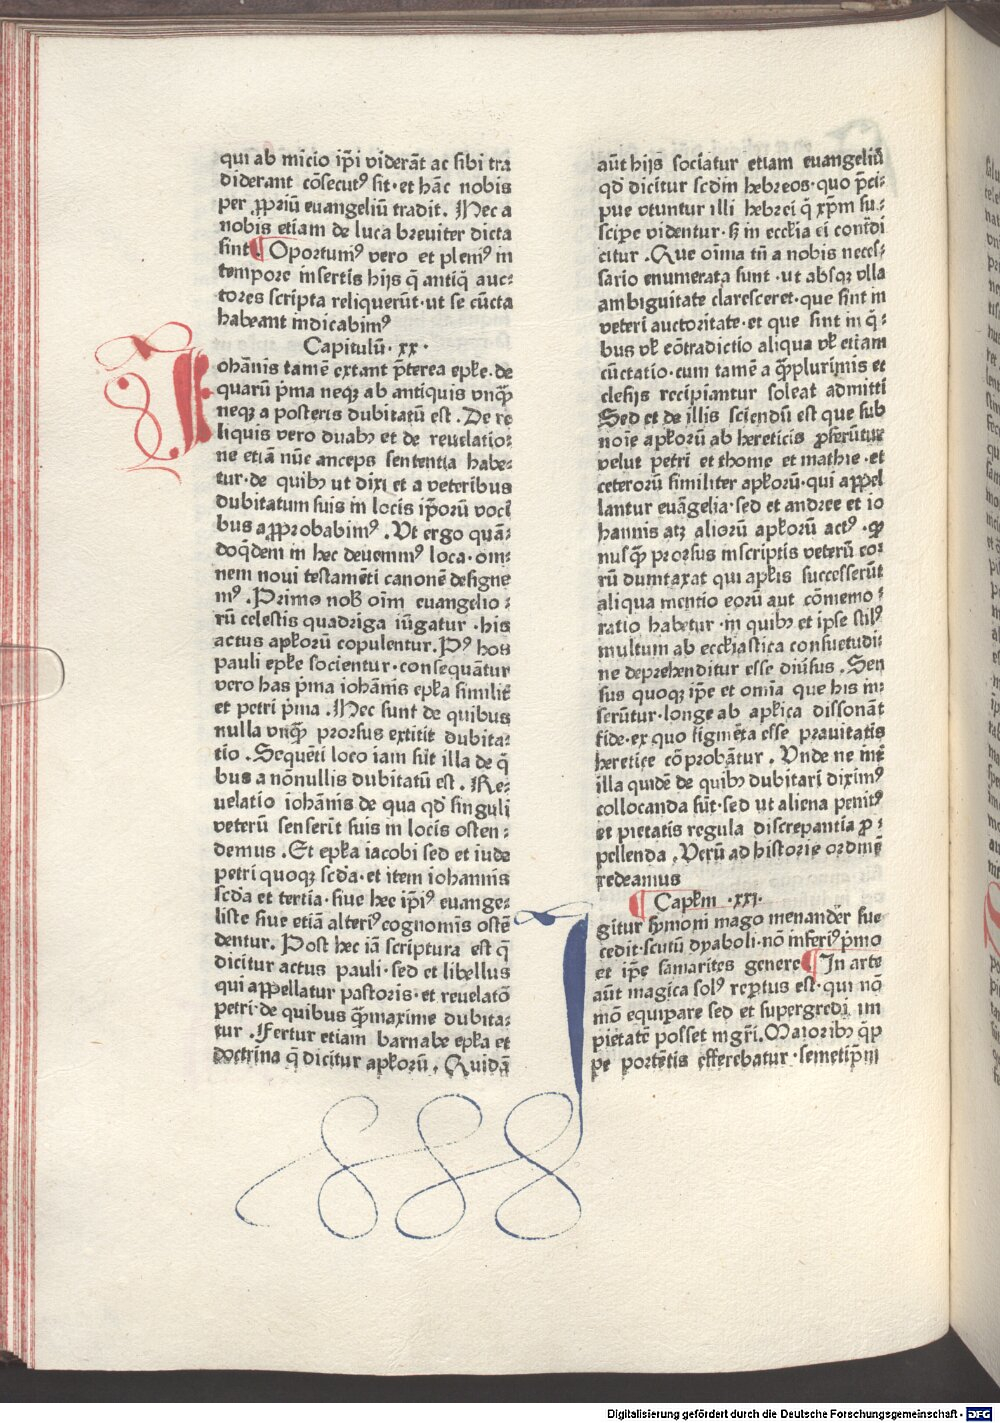 qui ab inicio ip̄i viderāt ac sibi tra
diderant cōsecutꝰ sit · et hāc nobis
per ꝓpriū euangeliū tradit . Hec a
nobis etiam de luca breuiter dicta
sint . Oportuniꝰ vero et pleniꝰ in
tempore insertis hijs q̄ antiq̄ auc⸗
tores scripta reliquerūt · ut se cūcta
habeant indicabimꝰ
Capitulū · xx ·
Iohānis tamē extant p̄terea epl̄e · de
quarū p̄ma neqꝫ ab antiquis vnq̄
neqꝫ a posteris dubitatū est . De re
liquis vero duabꝫ et de reuelatio⸗
ne etiā nūc anceps sententia habe⸗
tur · de quibꝫ ut dixi et a veteribus
dubitatum suis in locis ip̄orū voci
bus aꝓprobabimꝰ . Vt ergo quā⸗
doq̄dem in hec deuenimꝰ loca · om⸗
nem noui testamēti canonē designe
mꝰ . Primo nob̄ oīm euangelio⸗
rū celestis quadriga iūgatur · his
actus apl̄orū copulentur . Pꝰ hos
pauli epl̄e socientur · consequātur
vero has p̄ma iohānis epl̄a similit̄
et petri p̄ma . Hec sunt de quibus
nulla vnq̄ prorsus extitit dubita⸗
tio . Sequēti loco iam sūt illa de q̄
bus a nōnullis dubitatū est . Re⸗
uelatio iohānis de qua qd̄ singuli
veterū senserīt suis in locis osten⸗
demus . Et epl̄a iacobi sed et iude
petri quoqꝫ scd̄a · et item iohannis
scd̄a et tertia · siue hec ip̄iꝰ euange⸗
liste siue etiā alteriꝰ cognomīs ostē
dentur . Post hec iā scriptura est q̄
dicitur actus pauli · sed et libellus
qui appellatur pastoris · et reuelatō
petri · de quibus q̄maxime dubita⸗
tur . Fertur etiam barnabe epl̄a et
doctrina q̄ dicitur apl̄orū . Quidā
aūt hijs sociatur etiam euangeliū
qd̄ dicitur scd̄m hebreos · quo p̄ci⸗
pue vtuntur illi hebrei q̄ xp̄m su⸗
scipe videntur · sꝫ in eccl̄ia ei cont̄di
citur . Que oīma tn̄ a nobis neces⸗
sario enumerata sunt · ut absqꝫ vlla
ambiguitate claresceret · que sint in
veteri auctoritate · et que sint in q̄⸗
bus vl̄ cōtradictio aliqua vl̄ etiam
cūctatio · cum tamē a q̄plurimis et
clesijs recipiantur soleat admitti
Sed et de illis sciendū est que sub
noīe apl̄orū ab hereticis ꝓferūtur
velut petri et thome et mathie · et
ceterorū similiter apl̄orū · qui appel
lantur euāgelia · sed et andree et io
hannis atqꝫ aliorū apl̄orū actꝰ . Qꝛ
nusq̄ prorsus inscriptis veterū eor
rū dumtaxat qui apl̄is successerūt
aliqua mentio eorū aut cōmemo⸗
ratio habetur · in quibꝫ et ipse stilꝰ
multum ab eccl̄iastica consuetudi⸗
ne deprehenditur esse diūsus . Sen
sus quoqꝫ ip̄e et omīa que his in⸗
serūtur · longe ab apl̄ica dissonāt
fide · ex quo figmēta esse prauitatis
heretice cōprobātur . Vnde ne int̄
illa quidē de quibꝫ dubitari diximꝰ
collocanda sūt · sed ut aliena penitꝰ
et pietatis regula discrepantia ꝓ⸗
pellenda . Verū ad historie ordinē
redeamus
Capl̄m · xxi ·
Igitur symoni mago menander suc
cedit · scutū dyaboli · nō inferiꝰ p̄mo
et ip̄e samarites genere In arte
aūt magica solꝰ rep̄tus est · qui nō
mō equipare sed et supergredi im
pietatē posset mgr̄i . Maioribꝫ q̄p
pe portētis efferebatur · semetip̄m
Digitalisierung gefördert durch die Deutsche Forschungsgemeinschaft - DFG